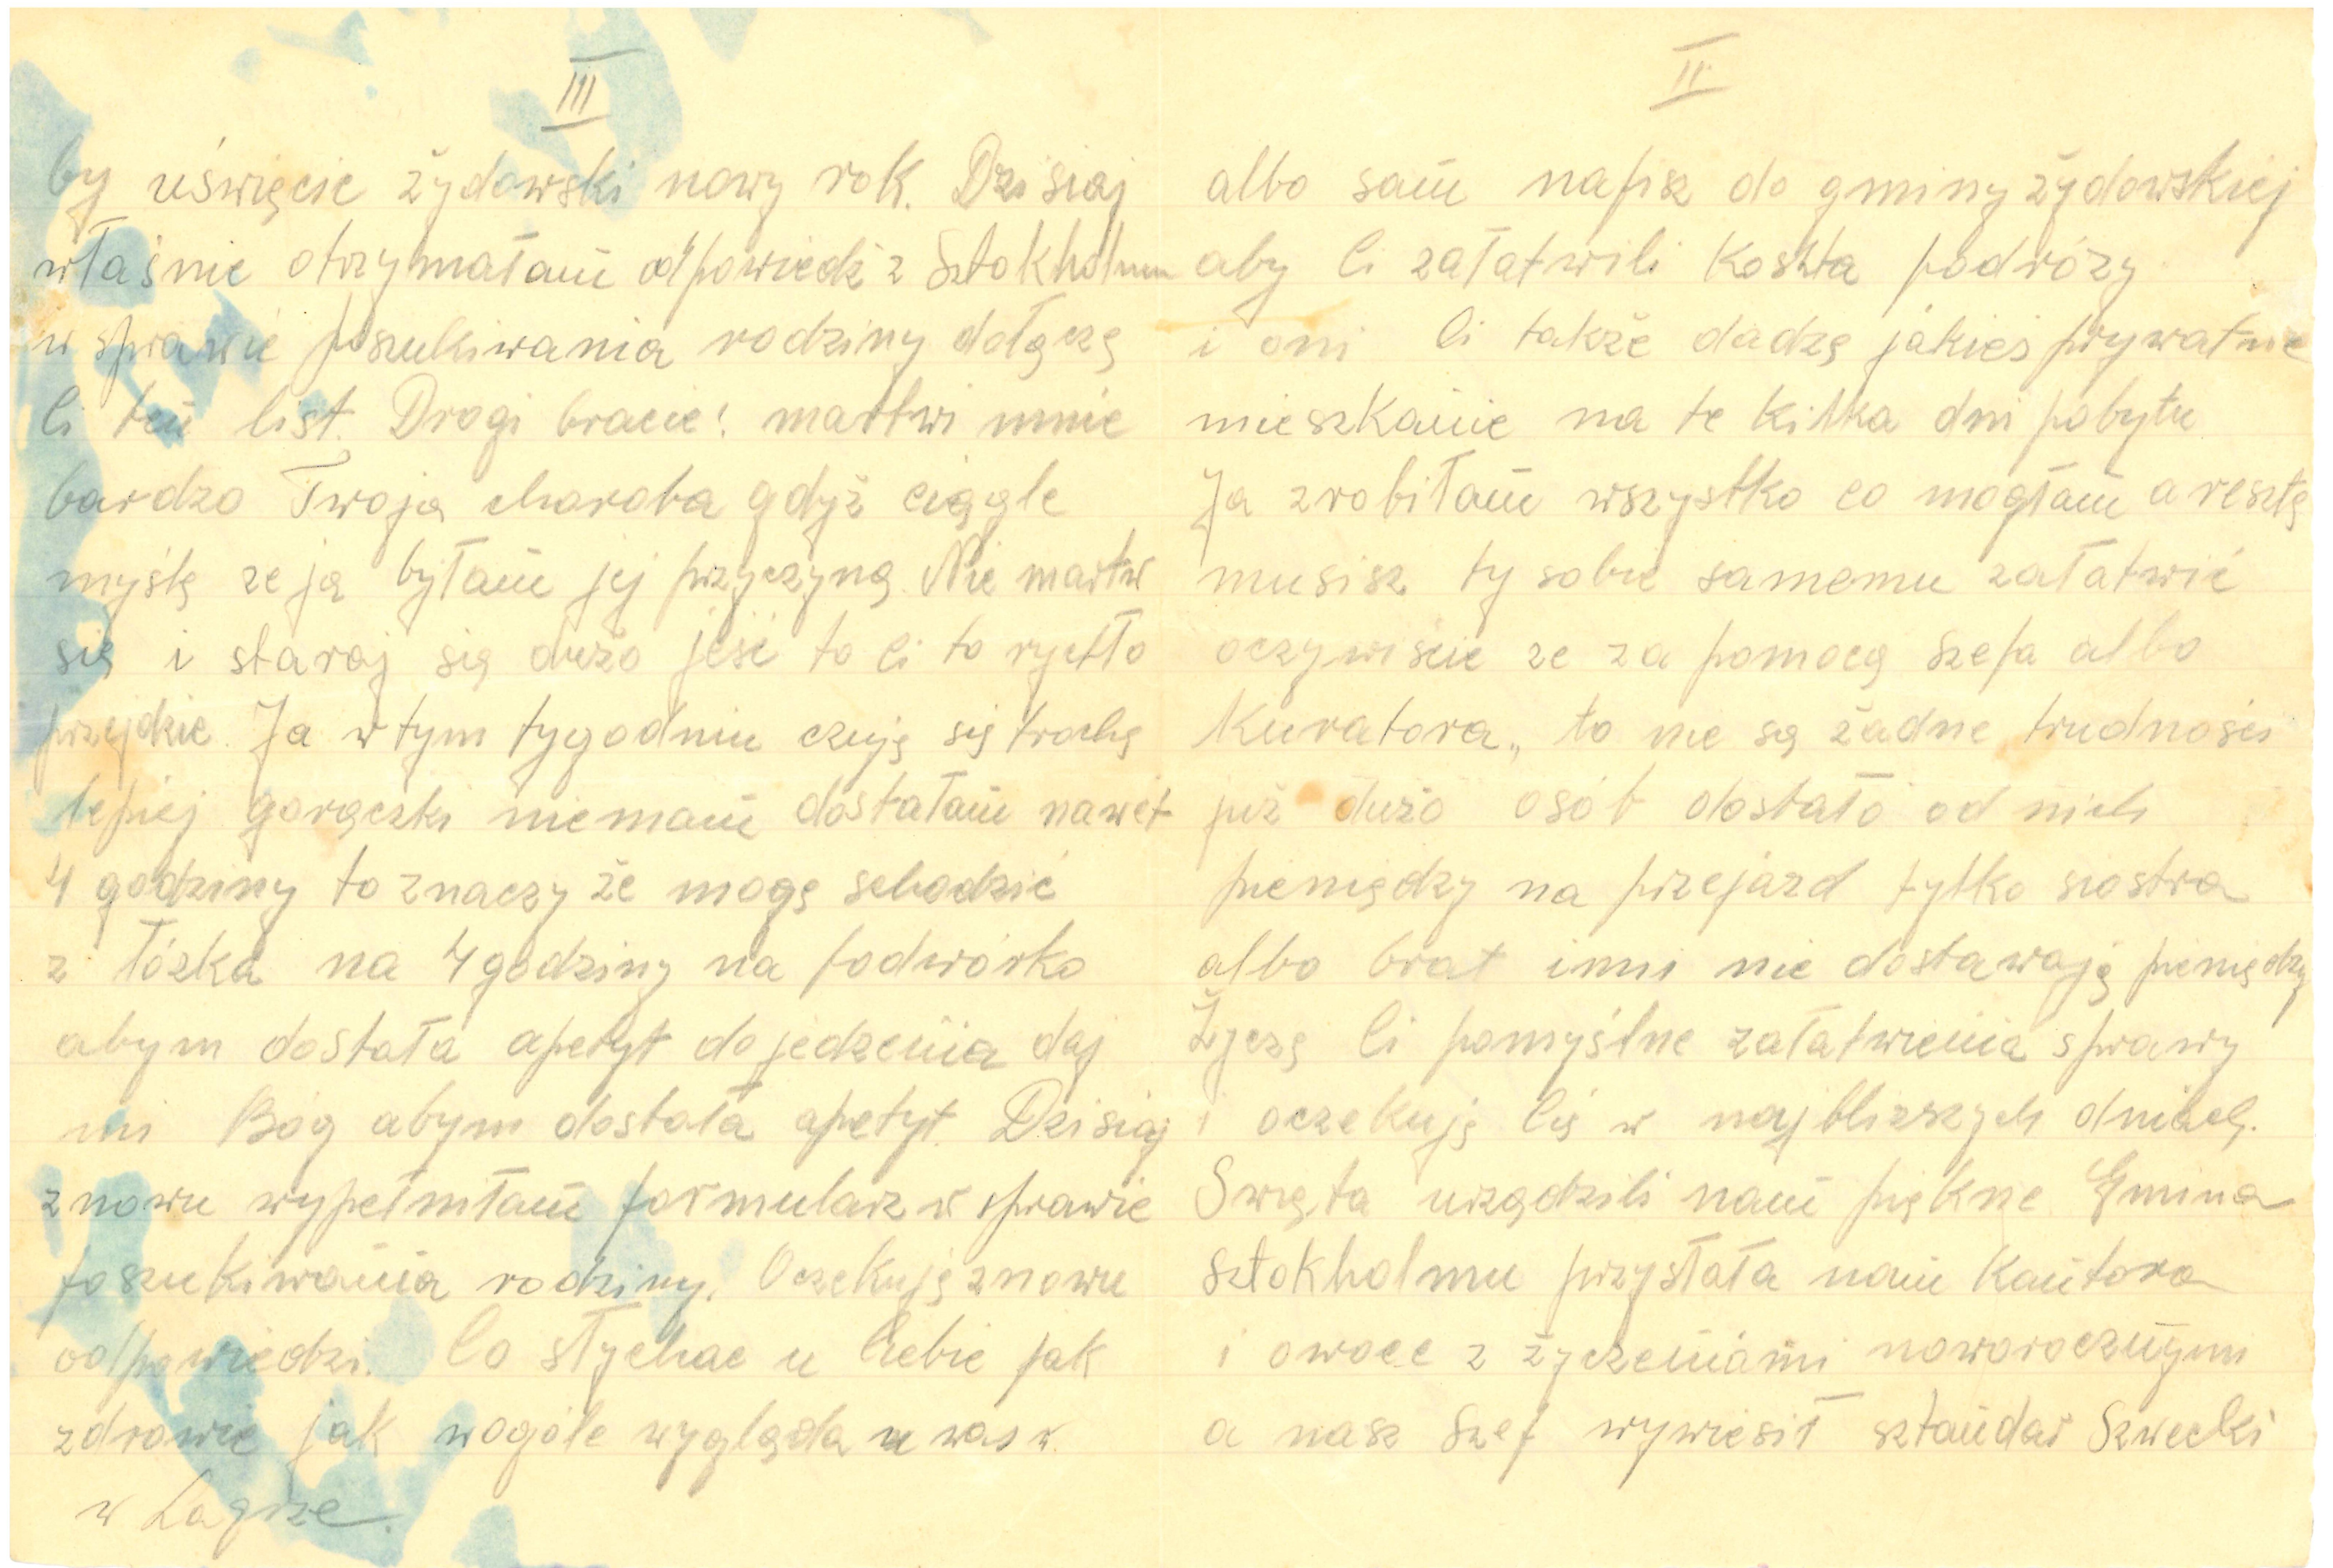 II
albo sam napisz do gminy żydowskiej
aby Ci załatwili koszta podróży
i oni Ci także dadzą jakieś prywatne
mieszkanie na te kilka dni pobytu
Ja zrobiłam wszystko co mogłam a resztę
musisz ty sobie samemu załatwić
oczywiście ze za pomocą szefa albo
Kuratora„ to nie są żadne trudności
już dużo osób dostało od nich
pieniędzy na przejazd tylko siostra
albo brat inni nie dostawają pieniędzy
Życzę Ci pomyślne załatwienia sprawy
i oczekuję Cię w najblizszych dniach.
Swięta urządzili nam piękne Gmina
Sztokholmu przysłała nam Kantora
i owoce z życzeniami noworocznym
a nasz szef wywiesił sztandar Szwecki
III
by uświęcic żydowski nowy rok. Dzisiaj
właśnie otrzymałam odpowiedź z Sztokholmu
w sprawie poszukiwania rodziny dołączę
Ci ten list. Drogi bracie! martwi mnie
bardzo Twoja choroba gdyż ciągle
myślę ze ja byłam jej przyczyną. Nie martw
się i staraj się dużo jeść to Ci to rychło
przejdzie. Ja w tym tygodniu czuję się trochę
lepiej gorączki niemam dostałam nawet
4 godziny to znaczy że mogę schodzić
z łózka na 4 godziny na podwórko
abym dostała apetyt do jedzenia daj
mi Bóg abym dostała apetyt. Dzisiaj
znowu wypełniłam formularz w sprawie
poszukiwania rodziny. Oczekuję znowu
odpowiedzi. Co słychac u Ciebie jak
zdrowie jak wogóle wygląda u was w
w Lagrze.